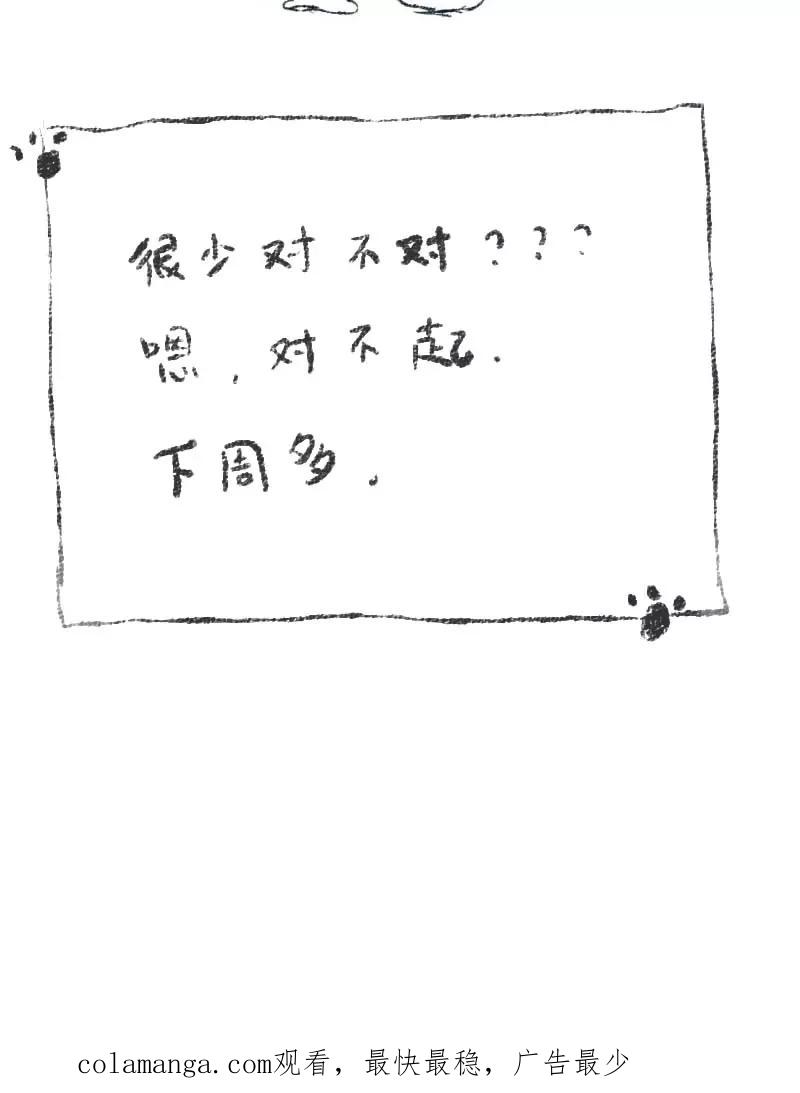 很少对不对???
嗯,对不起.
下周多.
colamanga.com观看，最快最稳，广告最少